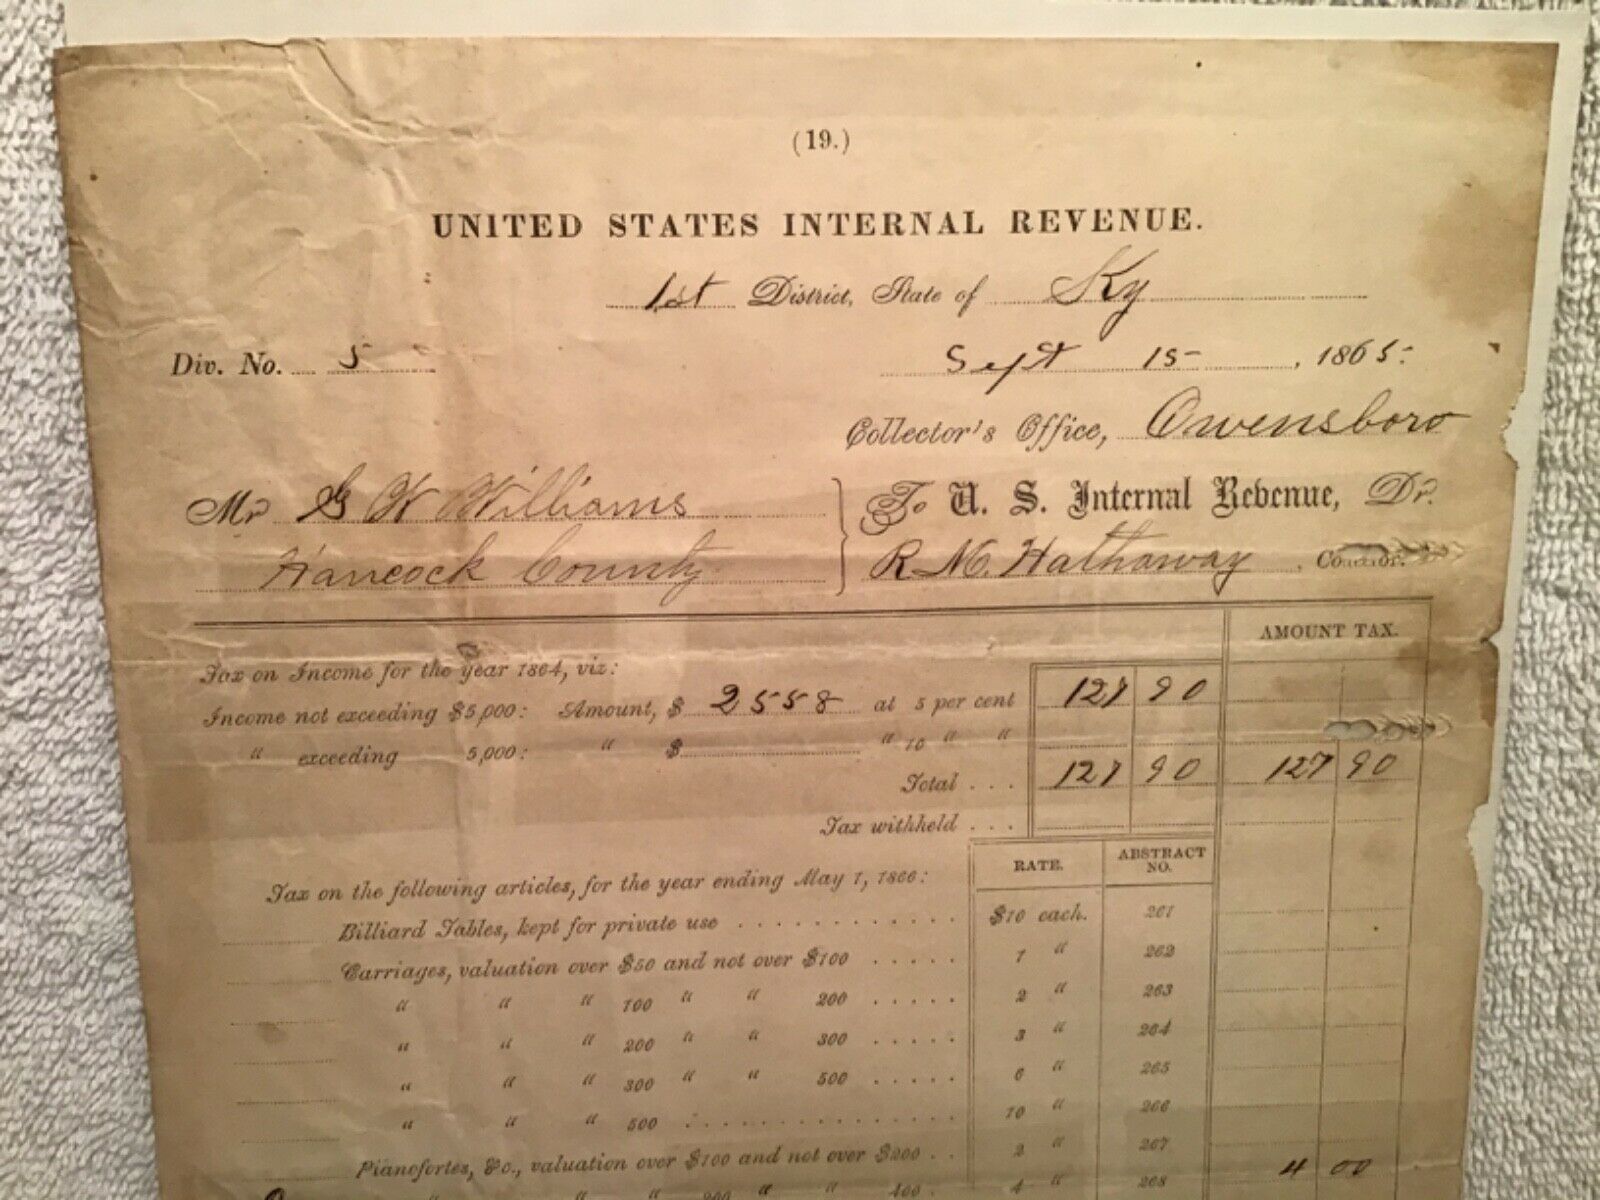 (19.)
UNITED STATES INTERNAL REVENUE.
1st District, State of Ky
Div. No. 5
Sept 15, 1865
Collector's Office, Owensboro
Mr G W Williams
Hancock County
To U. S. Internal Revenue, Dr.
R. M. Hathaway, Collector.
AMOUNT TAX.
Tax on Income for the year 1864, viz:
Income not exceeding $5,000: Amount, $ 2558 at 5 per cent 127 90
" exceeding 5,000: " $ " 10 " "
Total . . . 127 90 127 90
Tax withheld . . .
RATE. ABSTRACT NO.
Tax on the following articles, for the year ending May 1, 1866:
Billiard Tables, kept for private use . . . . . . . . . . . $10 each. 261
Carriages, valuation over $50 and not over $100 . . . . . 1 " 262
" " " 100 " " 200 . . . . . 2 " 263
" " " 200 " " 300 . . . . . 3 " 264
" " " 300 " " 500 . . . . . 6 " 265
" " " 500 . . . . . . . . . . . . . 10 " 266
Pianofortes, &c., valuation over $100 and not over $200 . . 2 " 267
" " " 200 " " 400 . 4 " 268 4 00